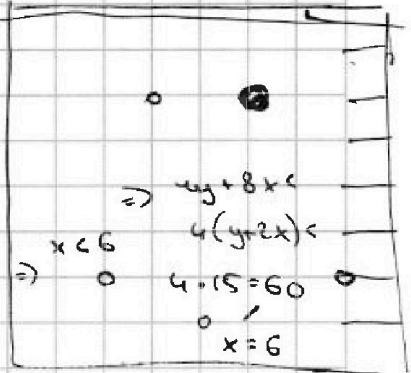 => 4y+8x<
4(y+2x)<
x<6
=> 4·15=60
x=6